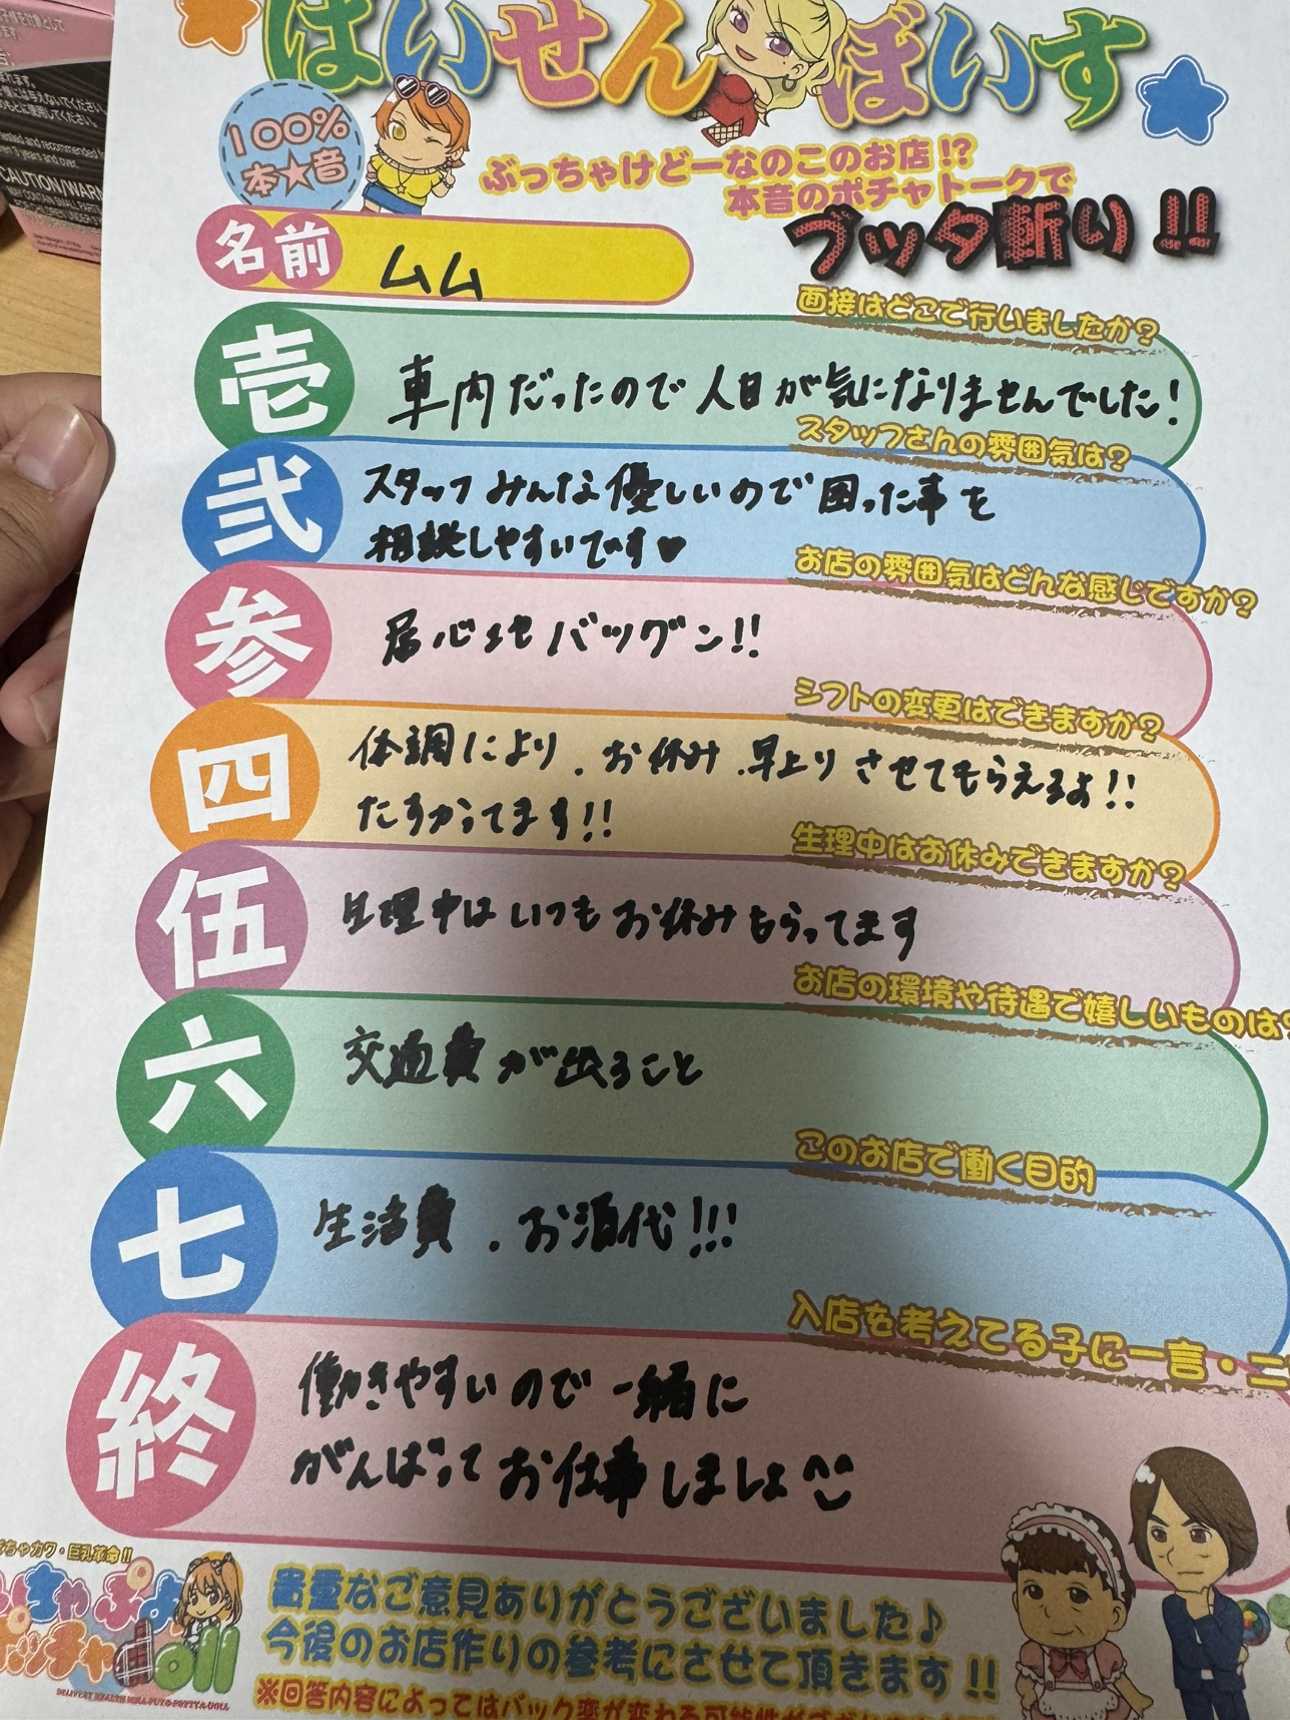 はいせんぼいす
100%
本★音
ぶっちゃけどーなのこのお店!?
本音のポチャトークで
ブッタ斬り!!
名前
ムム
面接はどこで行いましたか?
壱
車内だったので人目が気になりませんでした!
スタッフさんの雰囲気は?
弐
スタッフみんな優しいので困った事を
相談しやすいです♥
お店の雰囲気はどんな感じですか?
参
居心地バツグン!!
シフトの変更はできますか?
四
体調により、お休み、早上りさせてもらえるよ!!
たすかってます!!
生理中はお休みできますか?
伍
生理中はいつもお休みもらってます
お店の環境や待遇で嬉しいものは?
六
交通費が出ること
このお店で働く目的
七
生活費、お酒代!!!
入店を考えてる子に一言・二
終
働きやすいので一緒に
がんばってお仕事しましょ^^
ちゃカワ・巨乳革命!!
ちゃぷよ
ポッチャdoll
貴重なご意見ありがとうございました♪
今後のお店作りの参考にさせて頂きます!!
※回答内容によってはバック率が変わる可能性が
CAUTION/WARN